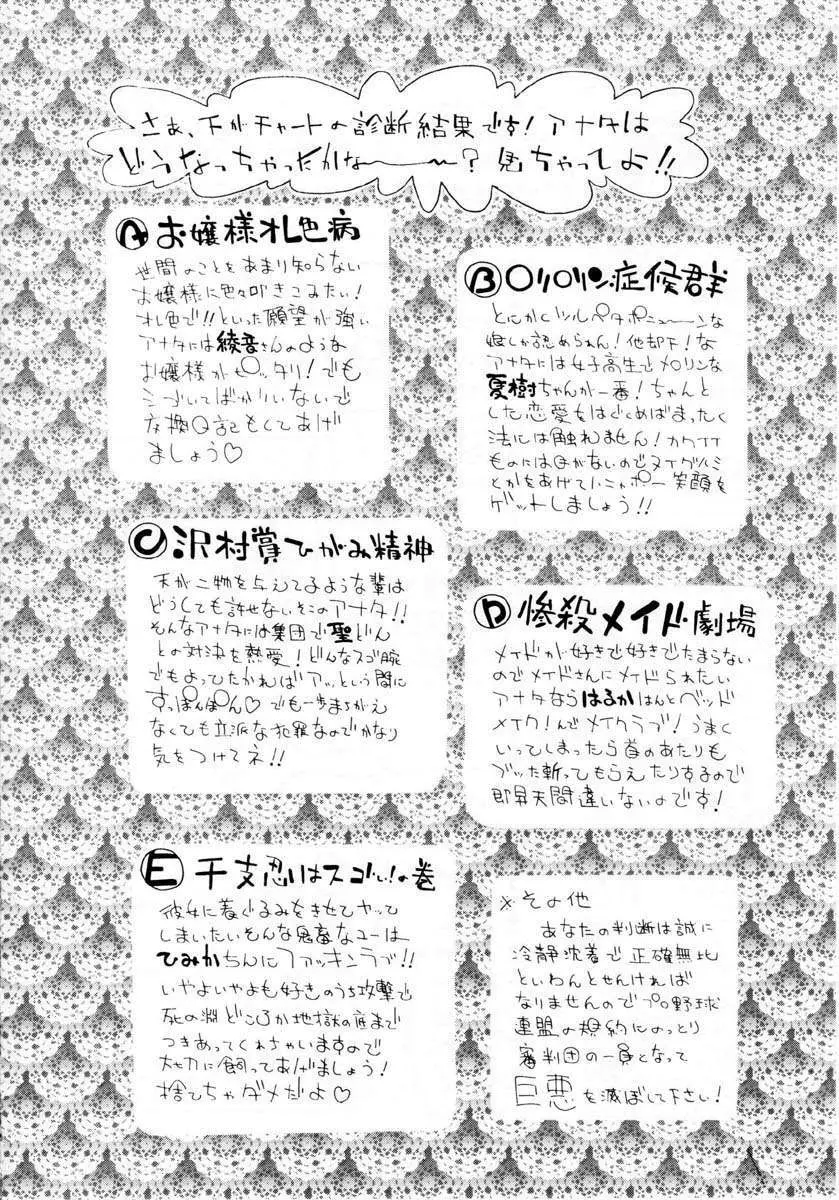 さぁ、下がチャートの診断結果です！アナタは
どうなっちゃったかな〜〜？見ちゃってしよ!!
A お嬢様オレ色病
世間のことをあまり知らない
お嬢様に色々叩きこみたい！
オレ色で!!といった願望が強い
アナタには綾音さんのような
お嬢様がピッタリ！でも
こづいてばかりいないで
交換日記もしてあげ
ましょう♡
B ○リ○リン症候群
とにかくツルペタポニューーンな
娘しか認められん！他却下！な
アナタには女子高生でメロリンな
夏樹ちゃんが一番！ちゃんと
した恋愛をはぐくめばまったく
法には触れません！カワイイ
ものには目がないのでヌイグルミ
とかをあげて
笑顔を
ゲットしましょう!!
C 沢村賞ひがみ精神
天が二物を与えてるような輩は
どうしても許せないそこのアナタ!!
そんなアナタには集団で聖どん
との対決を熱愛！どんなスゴ腕
でもよってたかればアッという間に
すっぽんぽん♡でも一歩まちがえ
なくても立派な犯罪なのでかなり
気をつけてネ!!
D 惨殺メイド劇場
メイドが好きで好きでたまらない
のでメイドさんにメイドられたい
アナタならはるかはんとベッド
メイク！んでメイクラブ！うまく
いってしまったら首のあたりも
ブッた斬ってもらえたりするので
即昇天間違いないのです！
E 干支忍りはスゴい！の巻
彼女に着ぐるみをきせてヤッて
しまいたいそんな鬼畜なユーは
ひみかちんにファッキンラブ!!
いやよいやよも好きのうち攻撃で
死の淵どころか地獄の底まで
つきあってくれちゃいますので
大切に飼ってあげましょう！
捨てちゃダメだよ♡
※その他
あなたの判断は誠に
冷静沈着で正確無比
といわんとせんければ
なりませんのでプロ野球
連盟の規約にのっとり
審判団の一員となって
巨悪を滅ぼして下さい！